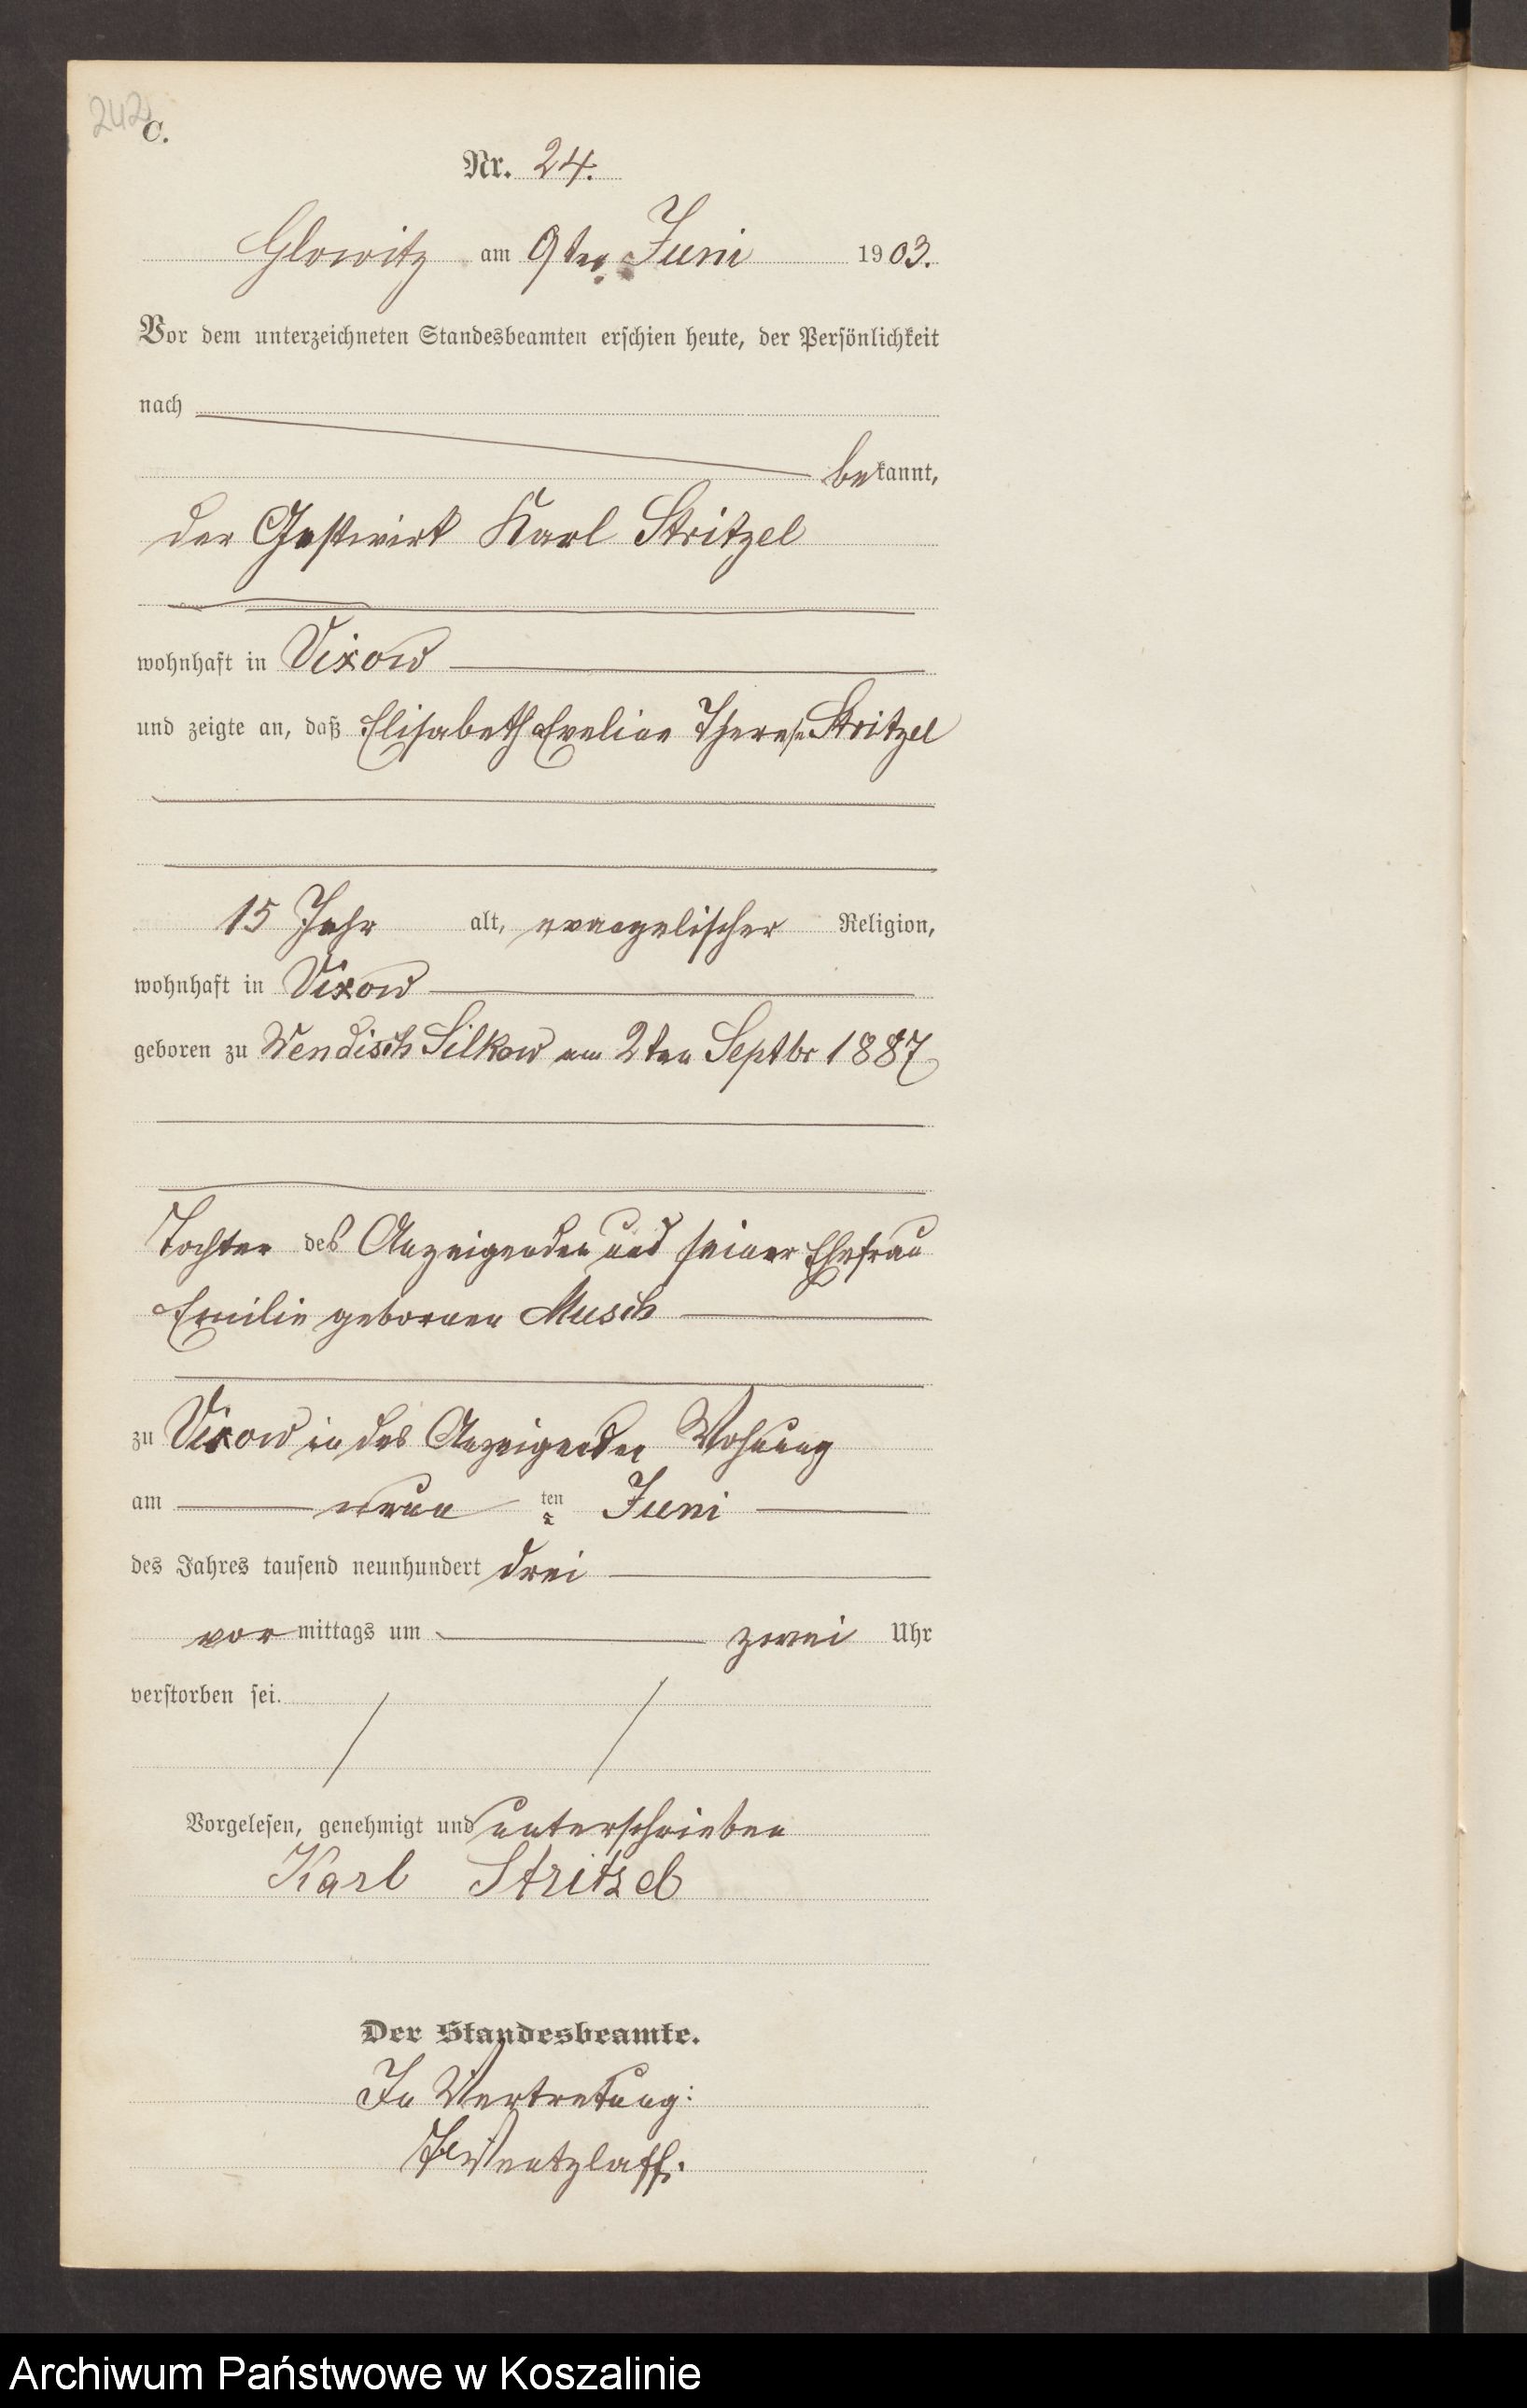 242
C.
Nr. 24.
Glowitz am 9ten Juni 1903.
Vor dem unterzeichneten Standesbeamten erschien heute, der Persönlichkeit
nach
bekannt,
der Gastwirt Karl Stritzel
wohnhaft in Vixow
und zeigte an, daß Elisabeth Eveline Therese Stritzel
15 Jahr alt, evangelischer Religion,
wohnhaft in Vixow
geboren zu Wendisch Silkow am 2ten Septbr 1887
Tochter des Anzeigenden und seiner Ehefrau
Emilie gebornen Musch
zu Vixow in des Anzeigenden Wohnung
am neun ten Juni
des Jahres tausend neunhundert drei
vormittags um zwei Uhr
verstorben sei.
Vorgelesen, genehmigt und unterschrieben
Karl Stritzel
Der Standesbeamte.
In Vertretung:
Wentzlaff.
Archiwum Państwowe w Koszalinie